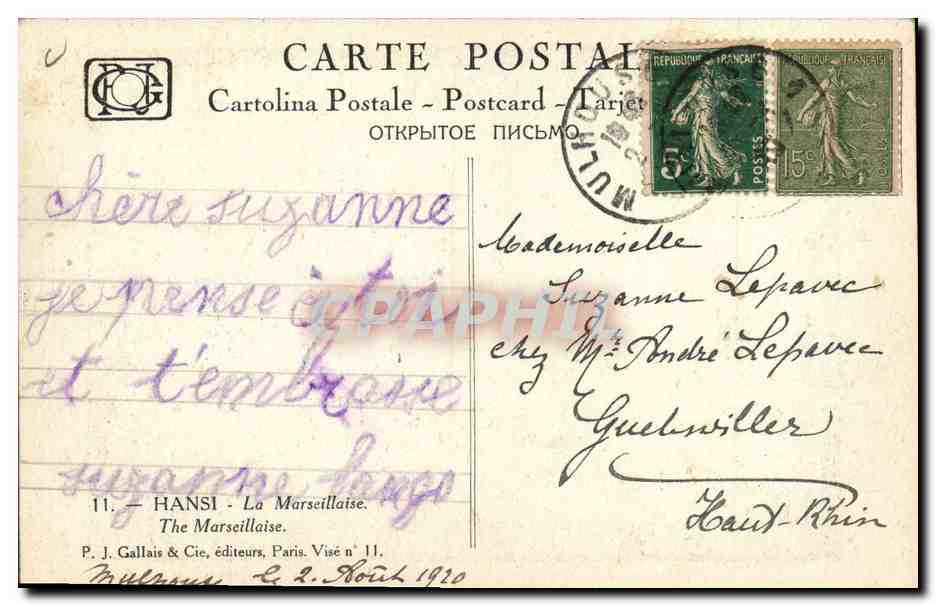 CARTE POSTAL
Cartolina Postale - Postcard - Tarjet
ОТКРЫТОЕ ПИСЬМО
MULHOUSE
RÉPUBLIQUE FRANÇAISE
POSTES
RÉPUBLIQUE FRANÇAISE
15c
chère suzanne
je pense à toi
et t'embrasse
suzanne
CPAPHIL
Mademoiselle
Suzanne Lepavec
chez Mr André Lepavec
Guebwiller
Haut-Rhin
11. — HANSI - La Marseillaise.
The Marseillaise.
P. J. Gallais & Cie, éditeurs, Paris. Visé n° 11.
Mulhouse le 2. Août 1920